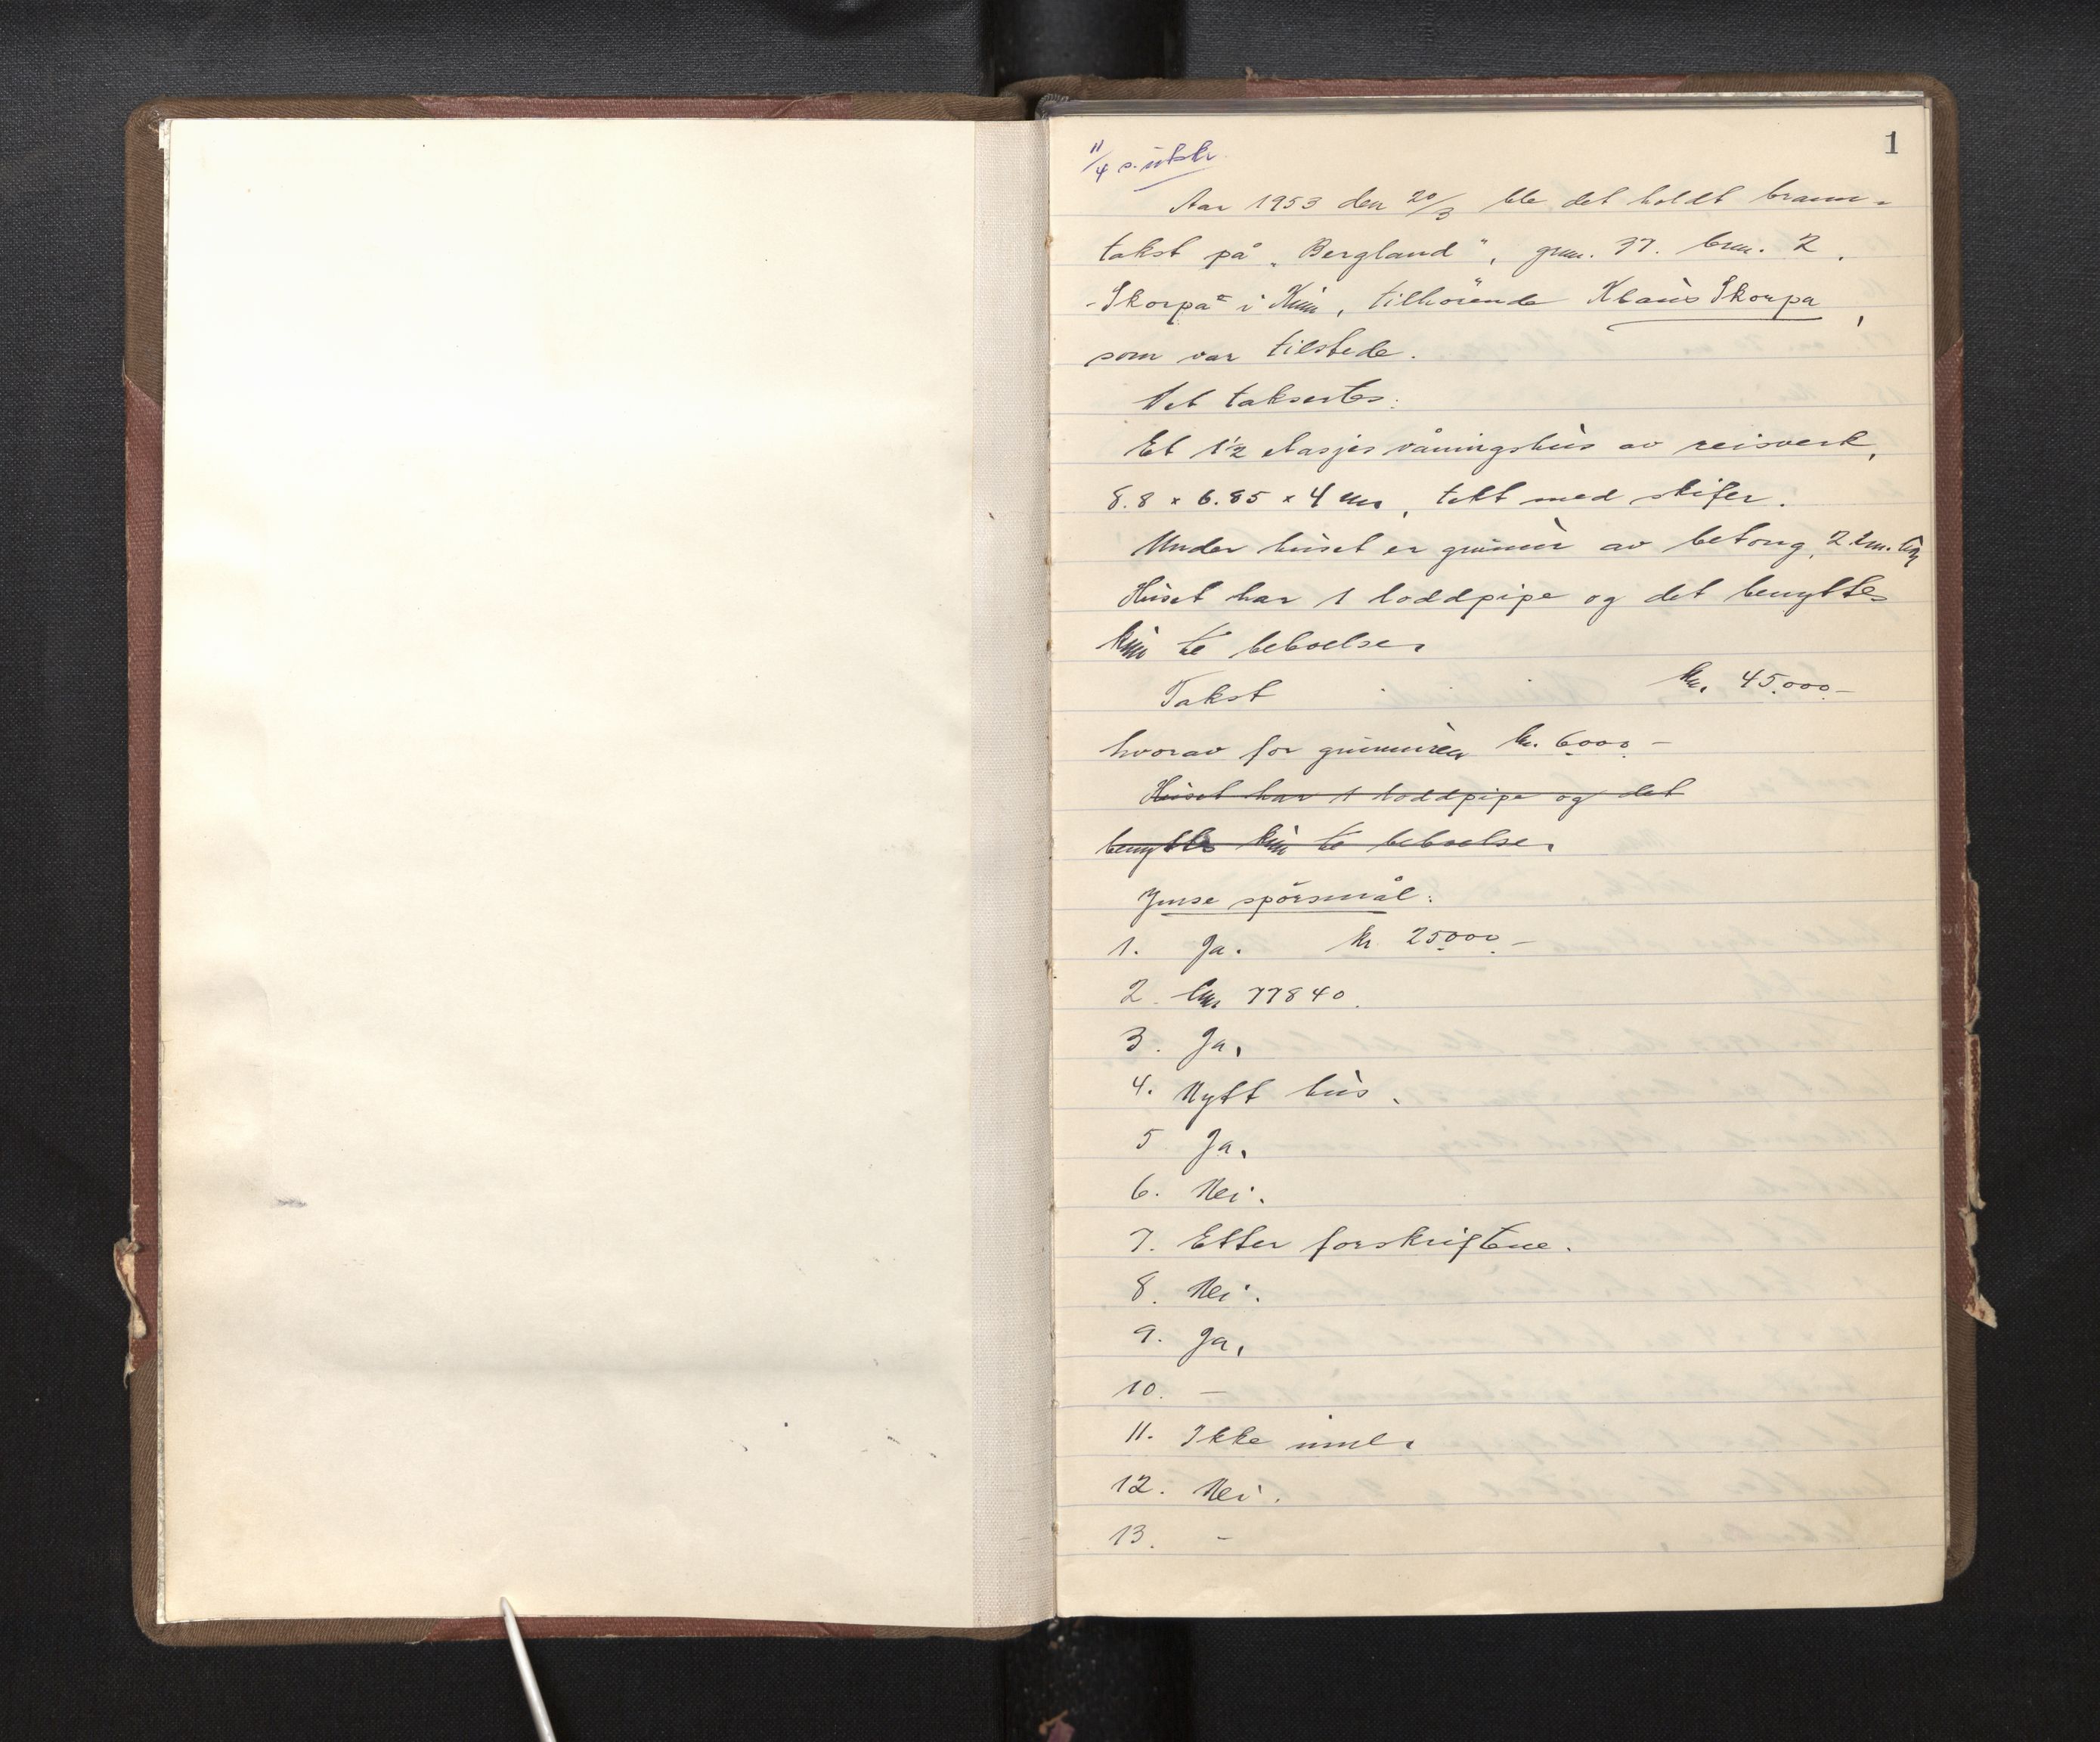 1
11/4 s. utskr.
Aar 1953 den 20/3 ble det holdt brann-
takst på „Bergland", gnr. 37. bnr. 2,
"Skorpa" i Kinn, tilhörende Klaus Skorpa,
som var tilstede.
Det taksertes:
Et 1 1/2 etasjes våningshus av reisverk,
8.8 x 6.85 x 4 m, tekt med skifer.
Under huset er grunnur av betong, 2.2 m. høg
Huset har 1 loddpipe og det benyttes
kun til beboelse.
Takst kr. 45.000.-
hvorav for grunnuren kr. 6000.-
Huset har 1 loddpipe og det
benyttes kun til beboelse.
Ymse spörsmål:
1. Ja. kr 25000.-
2. bnr 77840.
3. Ja.
4. Nytt hus.
5 Ja.
6. Nei.
7. Etter forskriftene.
8. Nei.
9. Ja.
10. -
11. Ikke innl.
12. Nei.
13. -